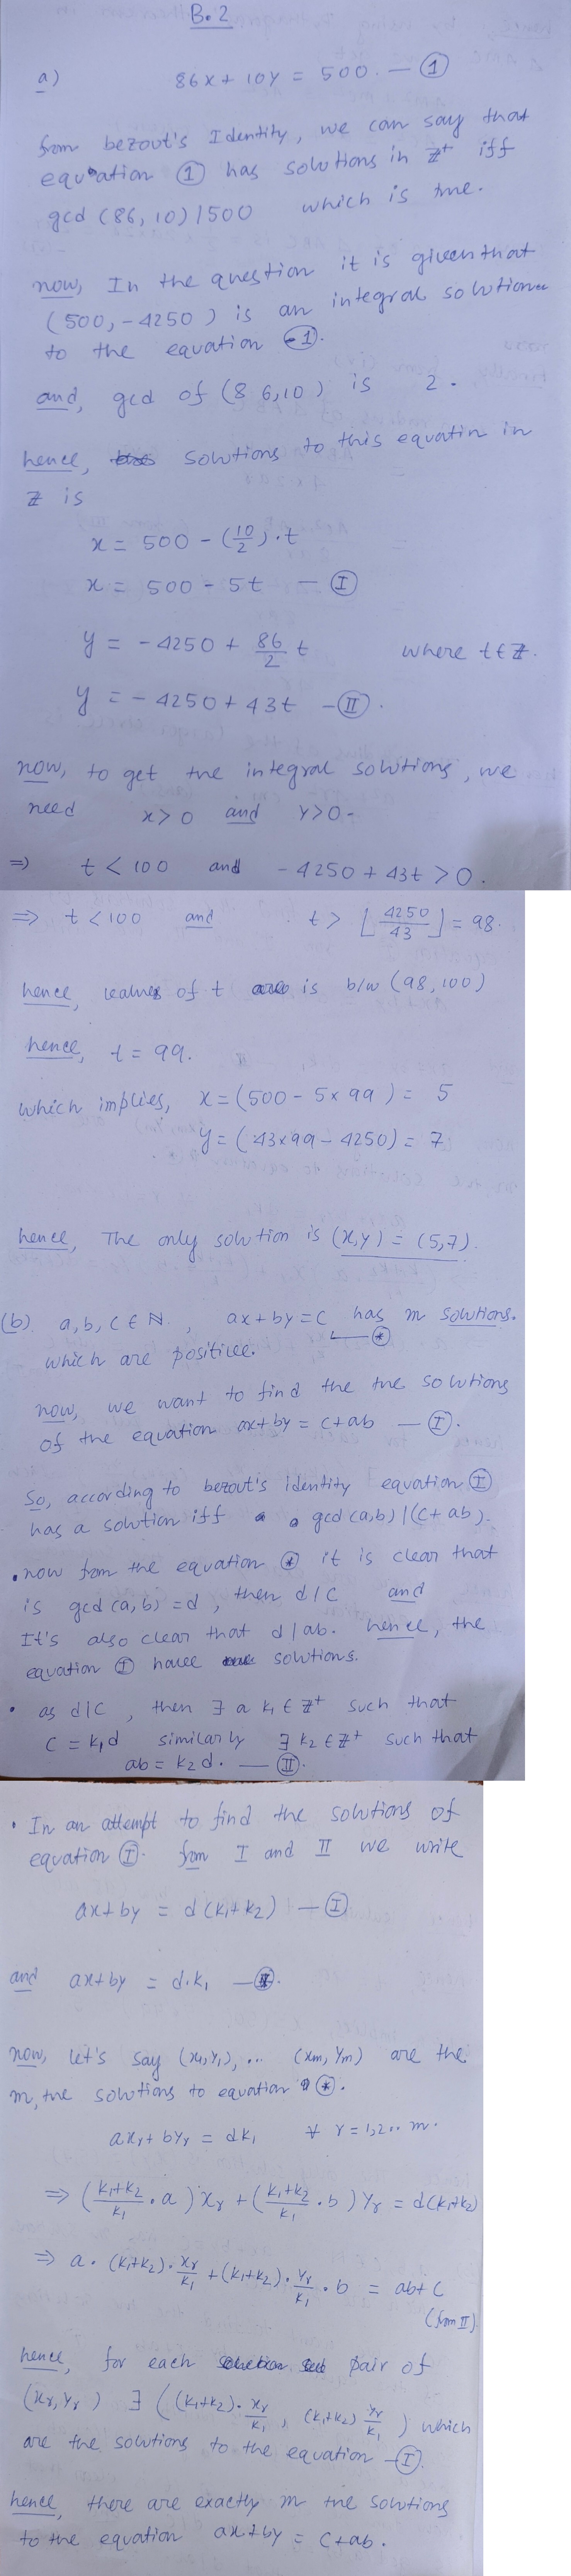 B.2
a) 86x + 10y = 500. — ①
from bezout's Identity, we can say that
equation ① has solutions in Z⁺ iff
gcd (86, 10) | 500 which is true.
now, In the question it is given that
(500, -4250) is an integral solution
to the equation - ①.
and, gcd of (86,10) is 2.
hence, solutions to this equatin in
Z is
x = 500 - (10/2).t
x = 500 - 5t — Ⓘ
y = -4250 + 86/2 t where t ∈ Z.
y = -4250 + 43t — Ⓘⓘ.
now, to get the integral solutions, we
need x > 0 and y > 0 -
⇒ t < 100 and -4250 + 43t > 0.
⇒ t < 100 and t > ⌊4250/43⌋ = 98.
hence, values of t is b/w (98, 100)
hence, t = 99.
which implies, x = (500 - 5×99) = 5
y = (43×99 - 4250) = 7
hence, The only solution is (x,y) = (5,7).
(b) a, b, c ∈ N., ax + by = c has m solutions.
which are positive. ⊛
now, we want to find the +ve solutions
of the equation ax + by = c + ab — Ⓘ.
So, according to bezout's identity equation Ⓘ
has a solution iff gcd (a,b) | (c + ab).
• now from the equation ⊛ it is clear that
is gcd (a,b) = d, then d | c and
It's also clear that d | ab. hence, the
equation Ⓘ have solutions.
• as d | c, then ∃ a k₁ ∈ Z⁺ such that
c = k₁d similarly ∃ k₂ ∈ Z⁺ such that
ab = k₂d. — Ⓘⓘ.
• In an attempt to find the solutions of
equation Ⓘ. from I and II we write
ax + by = d(k₁+k₂) — Ⓘ
and ax + by = d.k₁ —
now, let's say (x₁,y₁), ... (xm, ym) are the
m, +ve solutions to equation ⊛.
axᵣ + byᵣ = dk₁ ∀ r = 1,2.. m.
⇒ (k₁+k₂/k₁ . a) xᵣ + (k₁+k₂/k₁ . b) yᵣ = d(k₁+k₂)
⇒ a . (k₁+k₂) . xᵣ/k₁ + (k₁+k₂) . yᵣ/k₁ . b = ab + c
(from II)
hence, for each pair of
(xᵣ, yᵣ) ∃ ((k₁+k₂) . xᵣ/k₁ , (k₁+k₂) yᵣ/k₁) which
are the solutions to the equation - Ⓘ.
hence, there are exactly m +ve solutions
to the equation ax + by = c + ab.